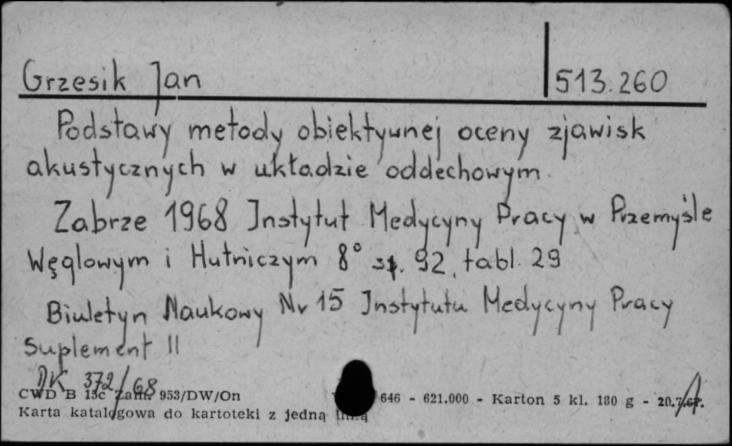 Grzesik Jan
513.260
Podstawy metody obiektywnej oceny zjawisk
akustycznych w układzie oddechowym.
Zabrze 1968 Instytut Medycyny Pracy w Przemyśle
Węglowym i Hutniczym 8° st. 92, tabl. 29
Biuletyn Naukowy Nr 15 Instytutu Medycyny Pracy
Suplement II
DK 372/68
CWD B 13c Zam. 953/DW/On 646 - 621.000 - Karton 5 kl. 180 g -
Karta katalogowa do kartoteki z jedną linią